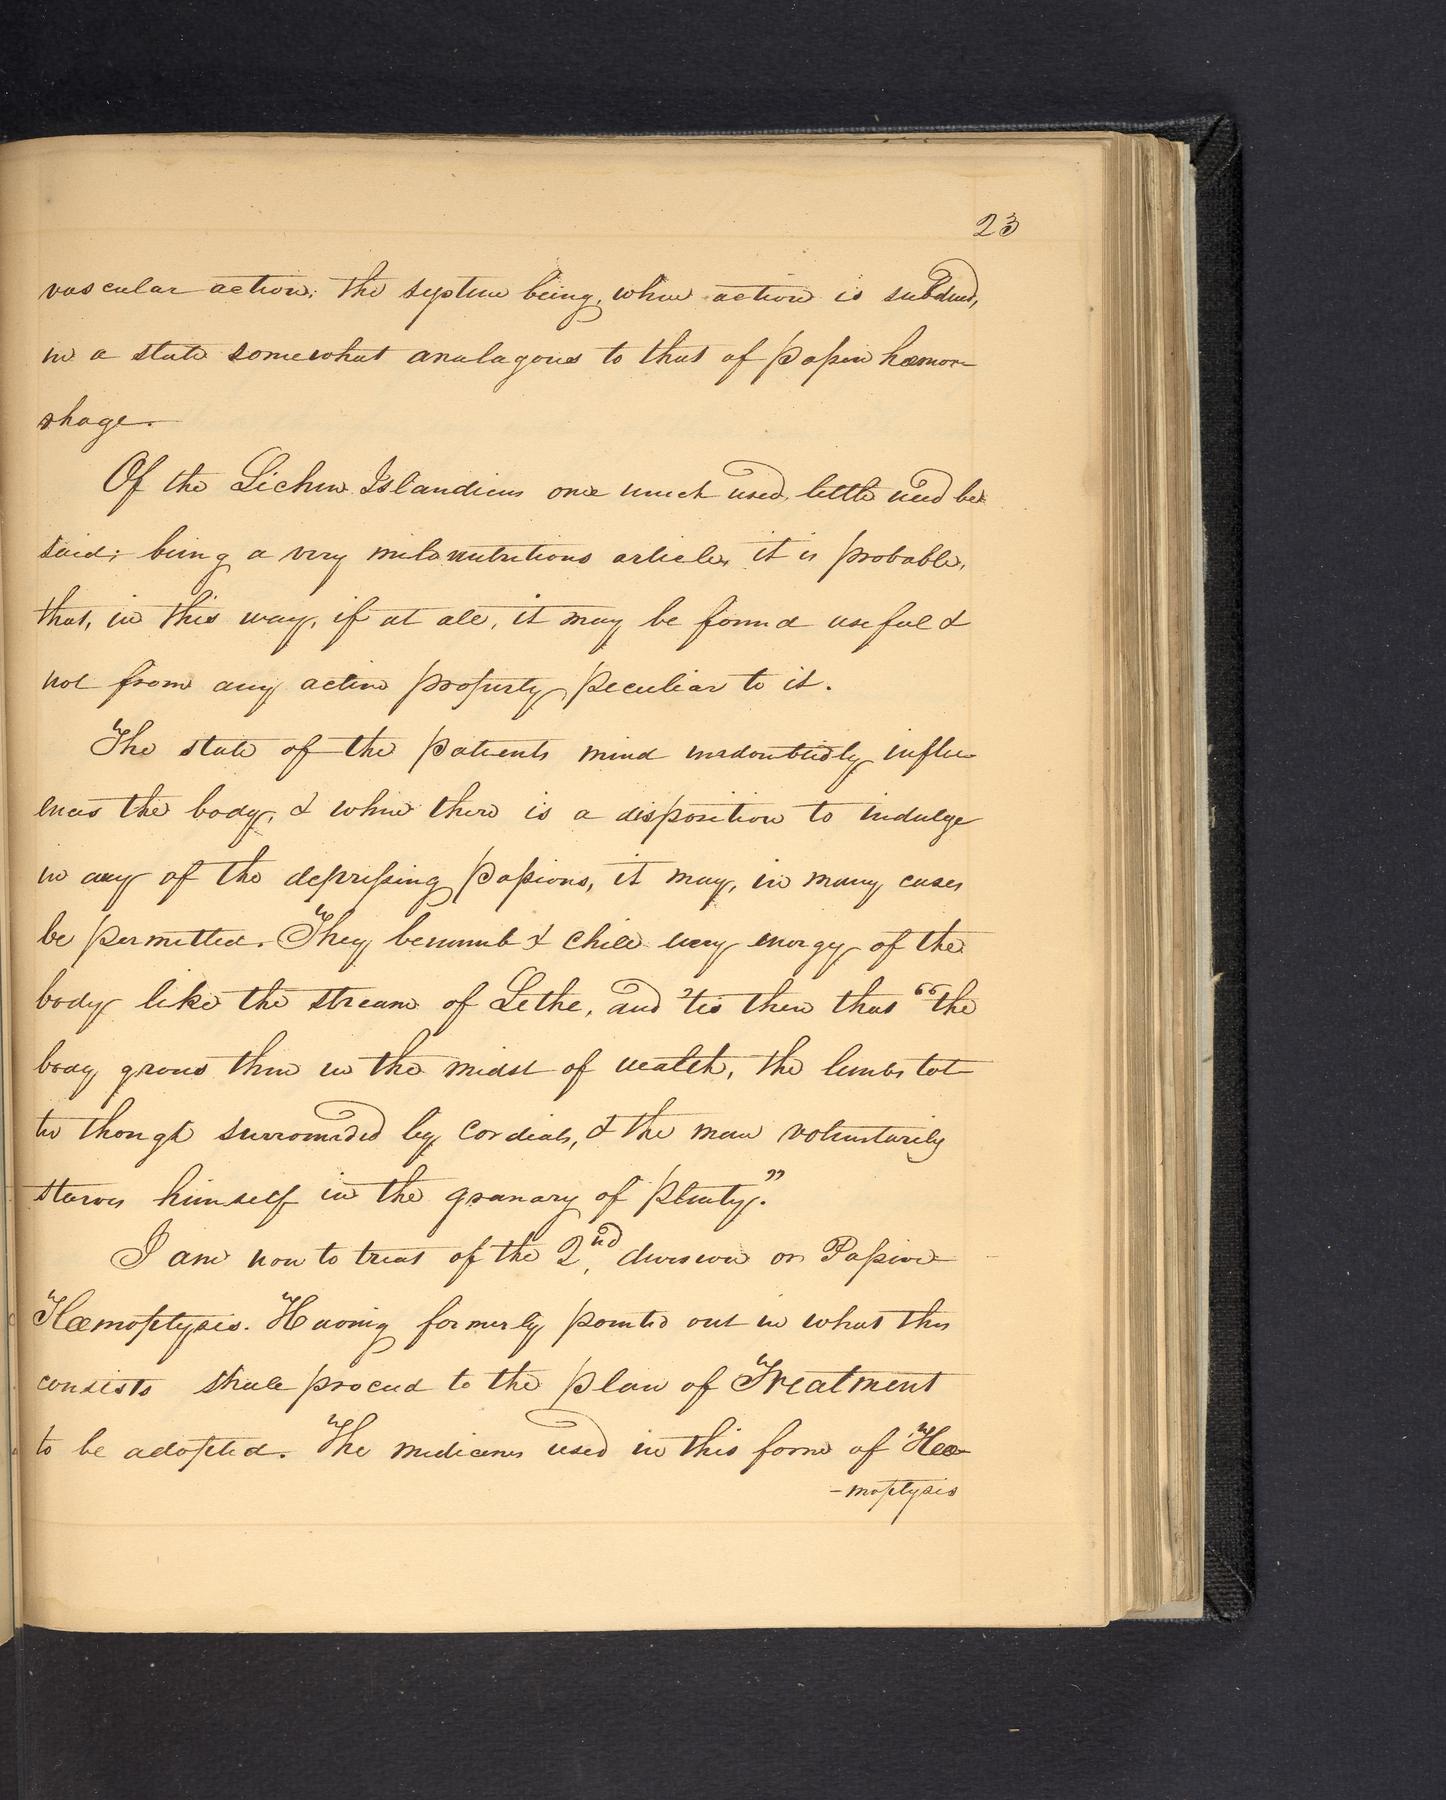 23
vascular action; the system being, when action is subdued,
in a state somewhat analagous to that of passive hæmorr
rhage.
Of the Lichen Islandicus once much used, little need be
said; being a very mild nutritious article, it is probable,
that, in this way, if at all, it may be found useful &
not from any active property peculiar to it.
The state of the patients mind undoubtedly influ
ences the body, & when there is a disposition to indulge
in any of the depressing passions, it may, in many cases
be permitted. They benumb & chill every energy of the
body like the stream of Lethe, and 'tis then that "the
body grows thin in the midst of wealth, the limbs tot
ter though surrounded by cordials, & the man voluntarily
starves himself in the granary of plenty."
I am now to treat of the 2nd, division or Passive
Hæmoptysis. Having formerly pointed out in what this
consists shall proceed to the plan of Treatment
to be adopted. The medicines used in this form of Hæ
-moptysis